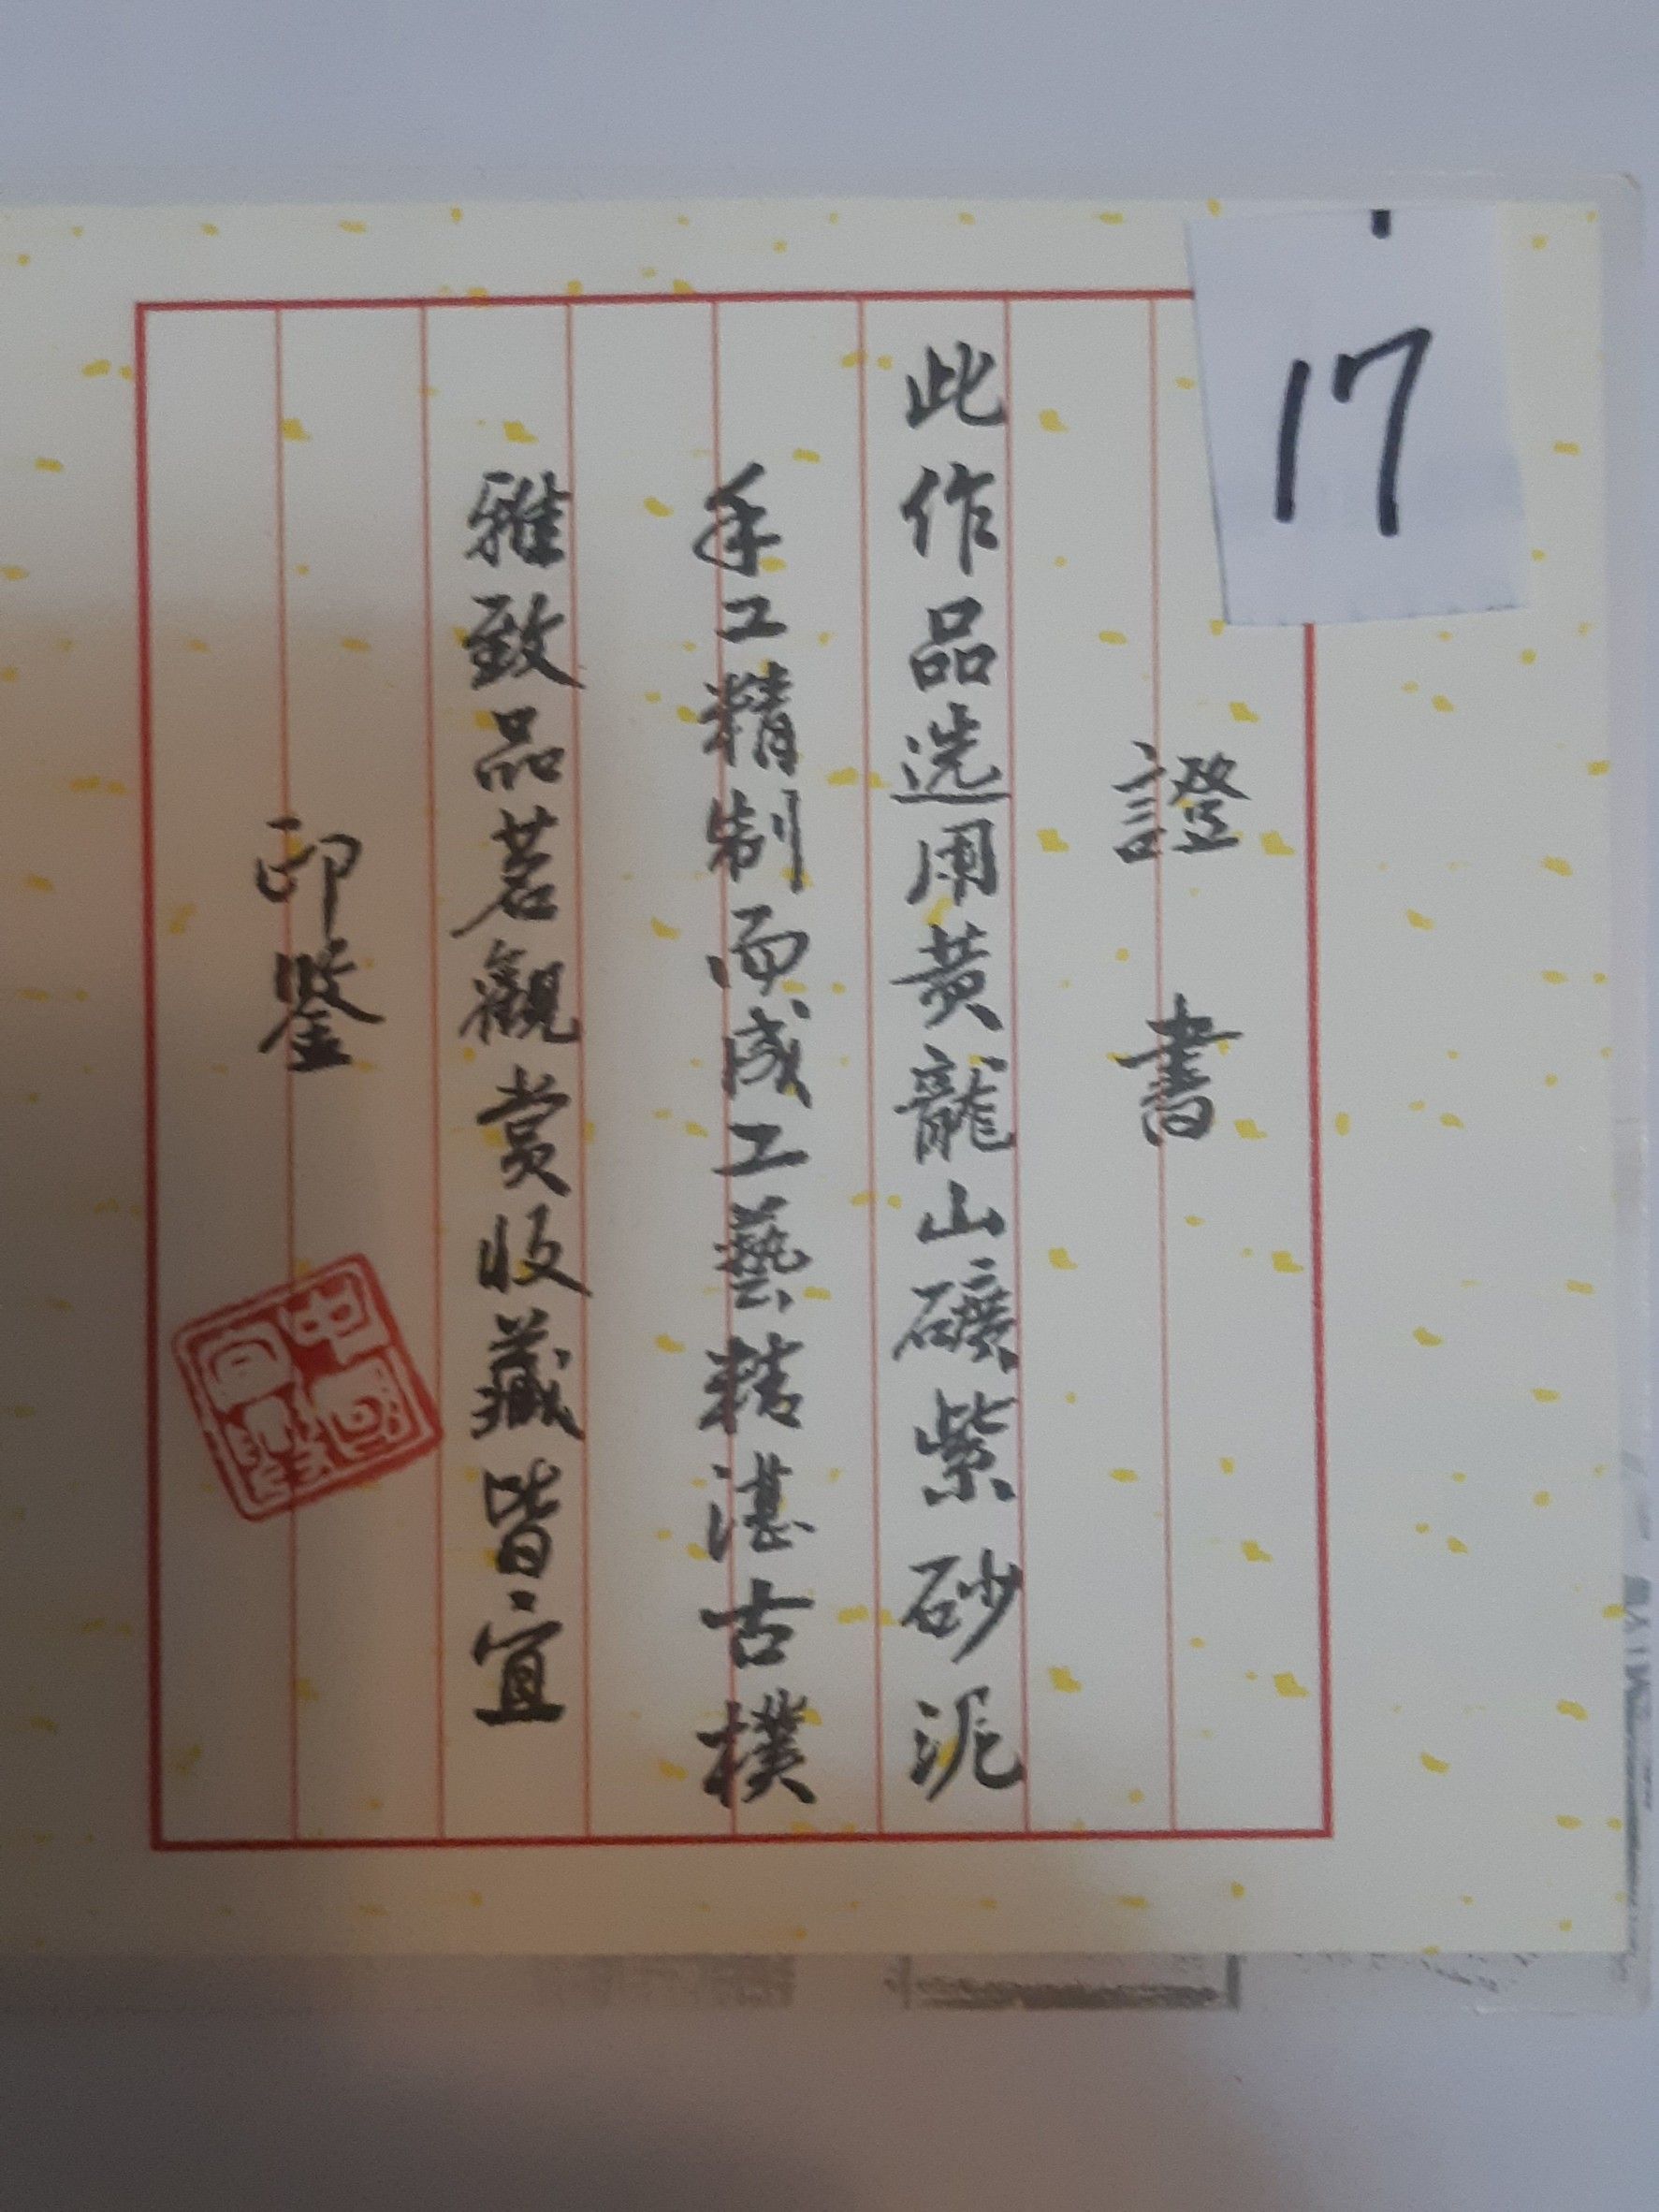 17
證書
此作品选用黄龍山礦紫砂泥
手工精制而成工藝精湛古樸
雅致品茗觀賞收藏皆宜
印鋻
中國宜興